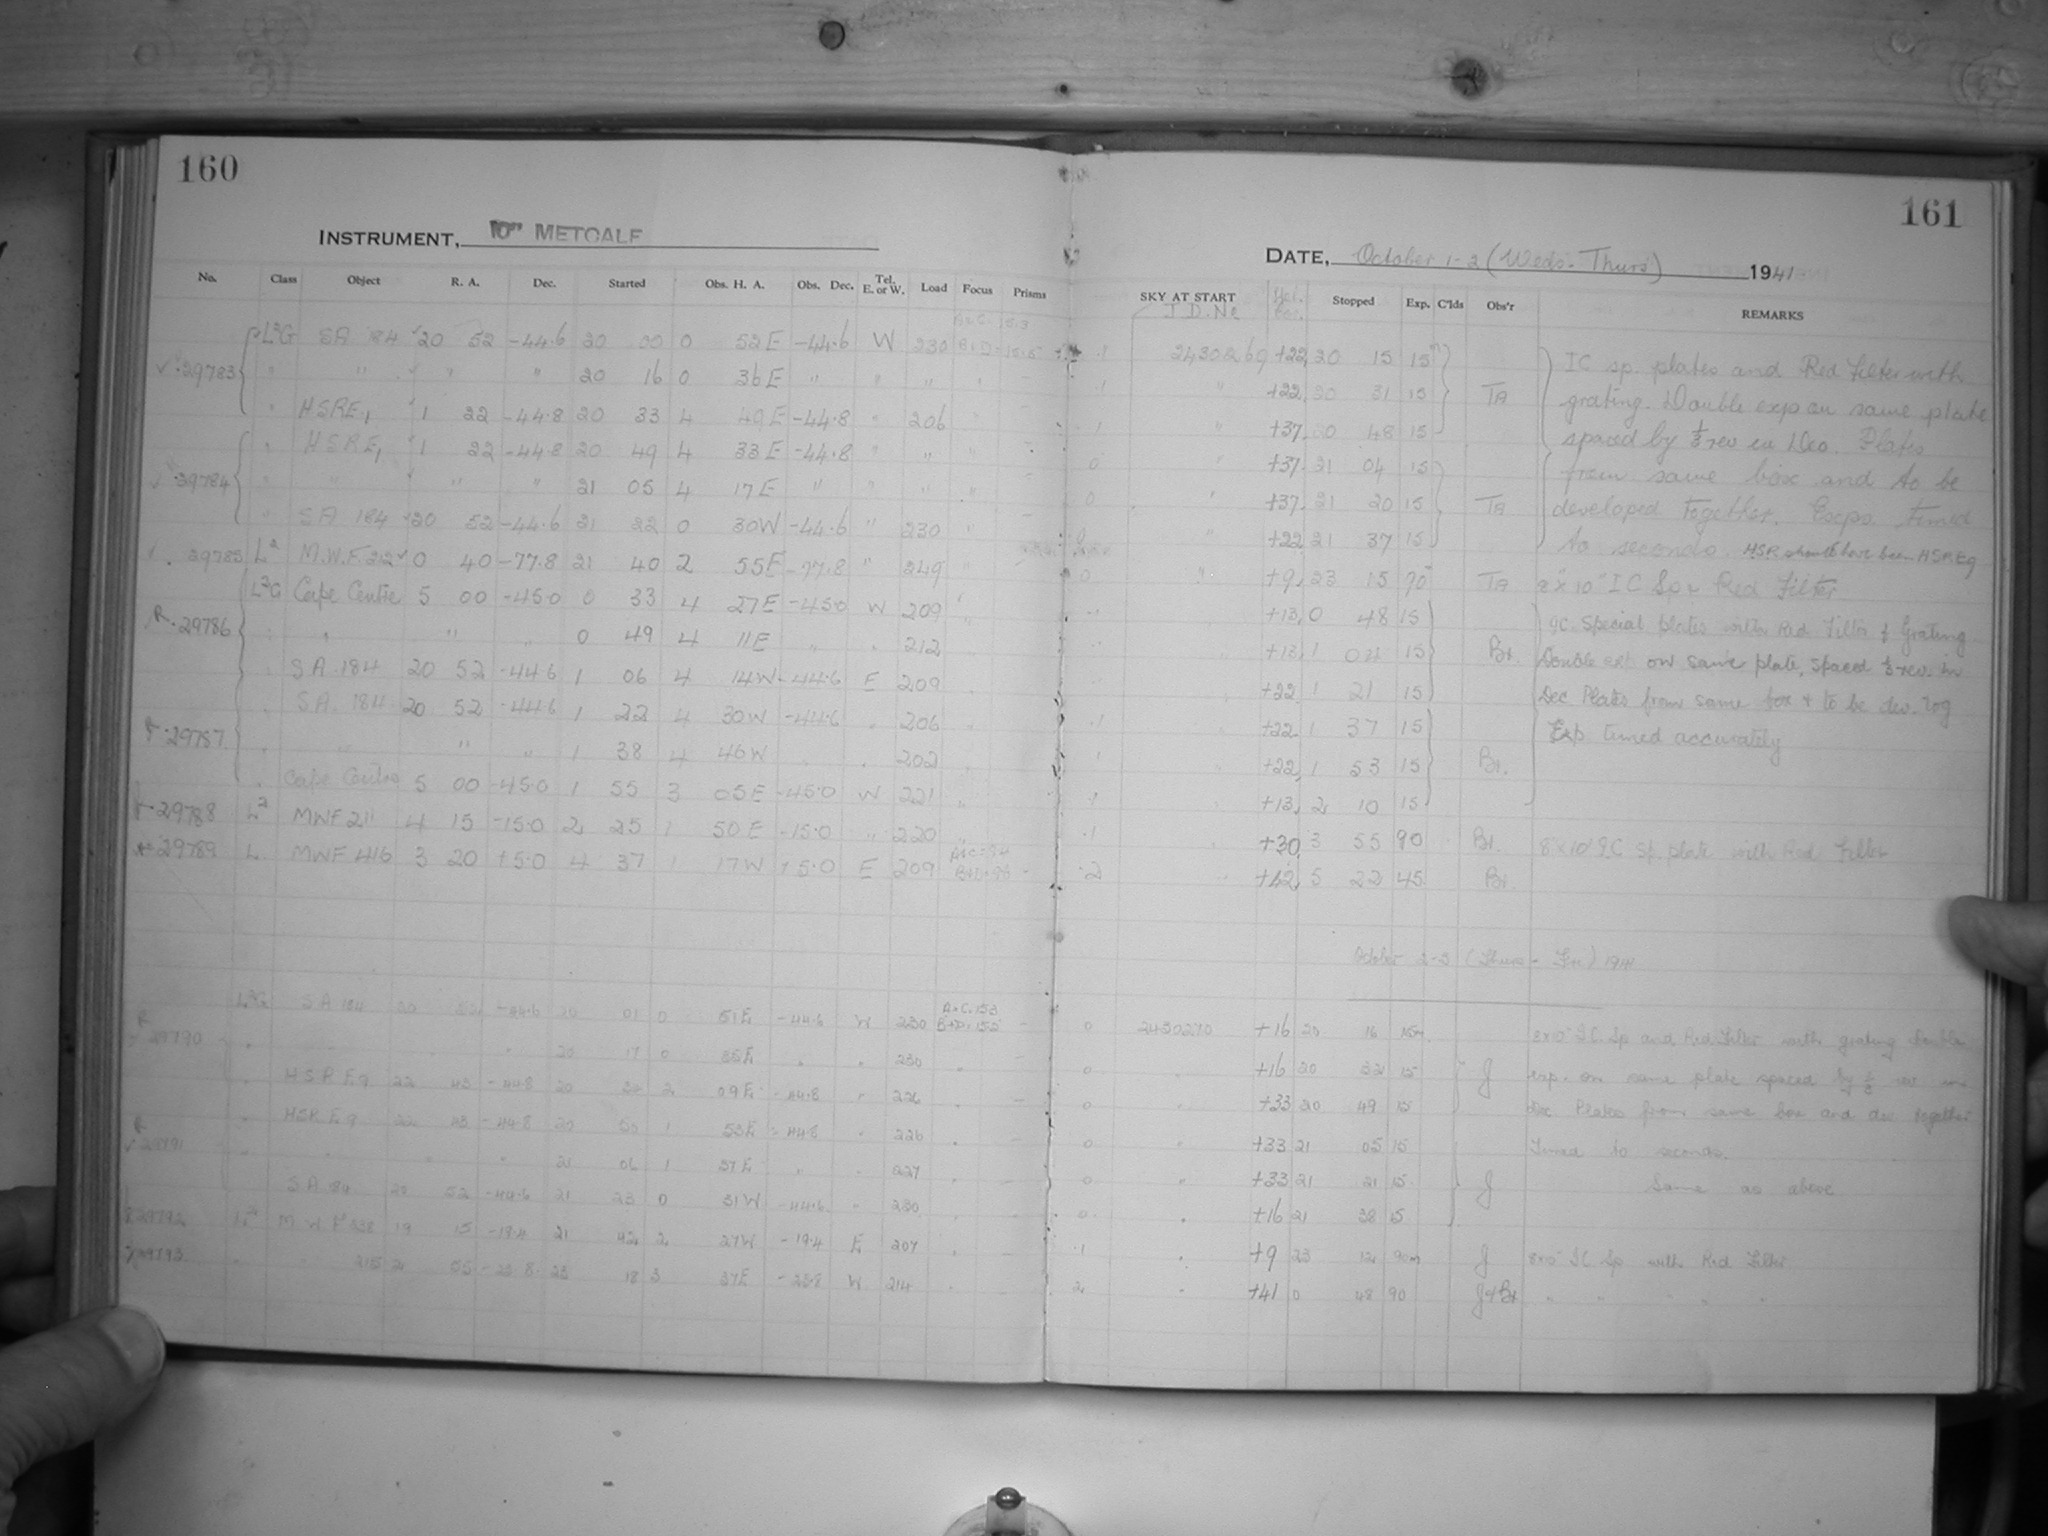 160
161
INSTRUMENT, 10" METCALF
DATE, October 1-2 (Weds - Thurs) 1941
No. Class Object R. A. Dec. Started Obs. H. A. Obs. Dec. Tel. E. or W. Load Focus Prisms
SKY AT START J.D. No Stopped Exp. C'lds Obs'r REMARKS
L²G SA 184 20 52 -44.6 20 00 0 52E -44.6 W 230 A+C 15.3 B+D = 15.5 .1 2430269 +22 20 15 15 IC sp. plates and Red Filter with
29783 " " " " 20 16 0 36E " " " .1 " +22 20 31 15 TA grating. Double exp on same plate
HSRE, 1 22 -44.8 20 33 4 49E -44.8 " 206 .1 " +37 20 48 15 spaced by ⅓ rev in Dec. Plates
HSRE, 1 22 -44.8 20 49 4 33E -44.8 " " 0 " +37 21 04 15 from same box and to be
29784 " " " " 21 05 4 17E " " " 0 " +37 21 20 15 TA developed together. Exps. timed
SA 184 20 52 -44.6 21 22 0 30W -44.6 " 230 0 " +22 21 37 15 to seconds. HSR should have been HSREq
29785 L² M.W.F. 212 0 40 -77.8 21 40 2 55E -77.8 " 249 0 " +9 23 15 90 TA 8" x 10" IC Sp & Red Filter
L²G Cape Centre 5 00 -45.0 0 33 4 27E -45.0 W 209 +13 0 48 15 IC. Special plates with Red Filter & Grating
29786 " " " 0 49 4 11E " " 212 +13 1 04 15 Br. Double ext on same plate, spaced ⅓ rev. in
SA. 184 20 52 -44.6 1 06 4 14W -44.6 E 209 +22 1 21 15 Dec Plates from same box & to be dev. tog
SA. 184 20 52 -44.6 1 22 4 30W -44.6 " 206 .1 +22 1 37 15 Exp timed accurately
29787 " " " 1 38 4 46W " " 202 .1 +22 1 53 15 Br.
Cape Centre 5 00 -45.0 1 55 3 05E -45.0 W 221 .1 +13 2 10 15
29788 L² MWF 211 4 15 -15.0 2 25 1 50E -15.0 " 220 .1 +30 3 55 90 Br. 8x10 IC Sp. plate with Red Filter
29789 L MWF 416 3 20 +5.0 4 37 1 17W +5.0 E 209 .2 +42 5 22 45 Br.
October 2-3 (Thurs - Fri) 1941
L²G SA 184 20 52 -44.6 20 01 0 51E -44.6 W 230 A+C. 15.3 B+D. 15.5 - 0 2430270 +16 20 16 15m 8x10" IC. Sp and Red Filter with grating Double
29790 " " 20 17 0 35E " " 230 0 +16 20 32 15 J exp. on same plate spaced by ⅓ rev in
HSR Eq 22 43 -44.8 20 34 2 09E -44.8 " 226 - 0 " +33 20 49 15 Dec Plates from same box and dev together
HSR Eq 22 43 -44.8 20 50 1 53E -44.8 " 226 - 0 " +33 21 05 15 Timed to seconds.
29791 " " " 21 06 1 37E " " 227 - 0 " +33 21 21 15 J Same as above
SA 184 20 52 -44.6 21 23 0 31W -44.6 " 230 - 0 " +16 21 38 15
29792 L² MWF 338 19 15 -19.4 21 42 2 27W -19.4 E 207 - .1 " +9 23 12 90m J 8x10" IC Sp with Red Filter
29793 " " 215 2 55 -23.8 23 18 3 37E -23.8 W 214 - 2 " +41 0 48 90 J & Br " " " " "